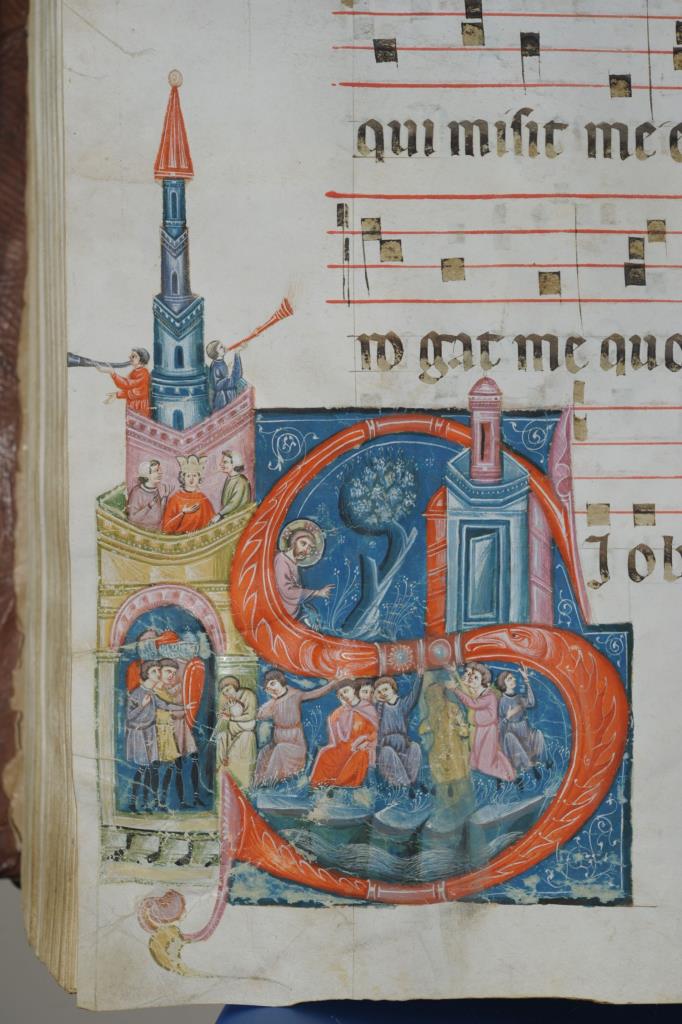 qui misit me
rogat me quo
S
Job